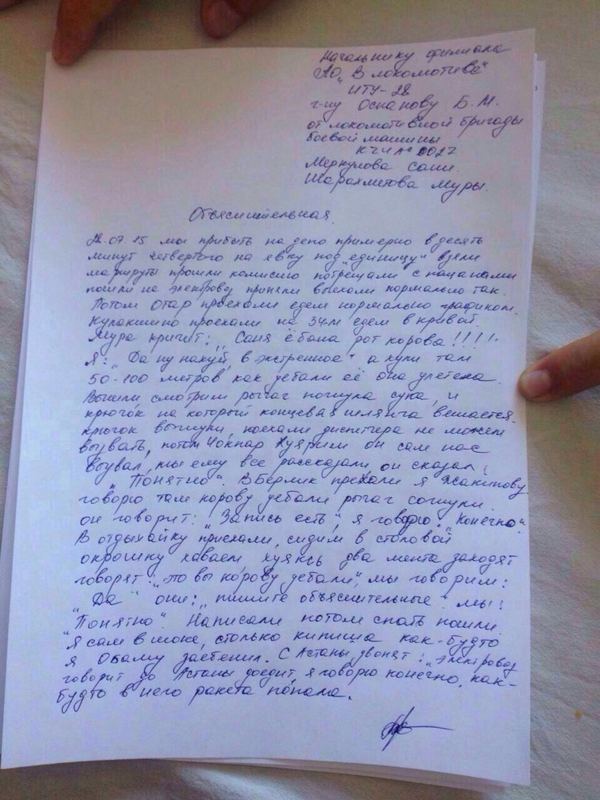 Начальнику филиала
АО „В локомотива"
ИТУ-28
г-ну Оспанову Б.М.
от локомотивной бригады
боевой машины
КЧ №0027
Меркулова Сани.
Шарахметова Муры.
Объяснительная.
07.15 мы прибыть на депо примерно в десять
минут четвертого на явку под „единицу" взяли
маршруты прошли комиссию потрещали с пацанами
пошли на электровоз приняли выехали нормально так.
Потом Отар проехали едем нормально графиком.
Кулакшино проехали на 34-м едем в кривой.
Мура кричит: „Саня ё бана рот корова!!!!"
Я: „Да ну нахуй, в экстренное" а хули там
50-100 метров как уебали её она улетела.
Вышли смотрим рычаг погнула сука, и
крючок на который концевая шлянга вешается.
крючок выгнули, поехали диспетчера не можем
вызвать, потом Чокпар хуярим он сам нас
вызвал, мы ему все рассказали, он сказал:
„Понятно". В Берлик прехали я Жакипову
говорю там корову уебали рычаг согнули.
он говорит: „Запись есть", я говорю: „Конечно".
В отдыхайку приехали, сидим в столовой
окрошку хаваем хуяксь два мента заходят
говорят: „это вы корову уебали", мы говорим:
„Да" они: „пишите объяснительные" мы:
„Понятно". Написали потом спать пошли.
Я сам в шоке, столько кипиша как-будто
я Обаму заебенил. С Астаны звонят: „Электровоз
говорит до Астаны доедит, я говорю конечно, как-
будто в него ракета попала.